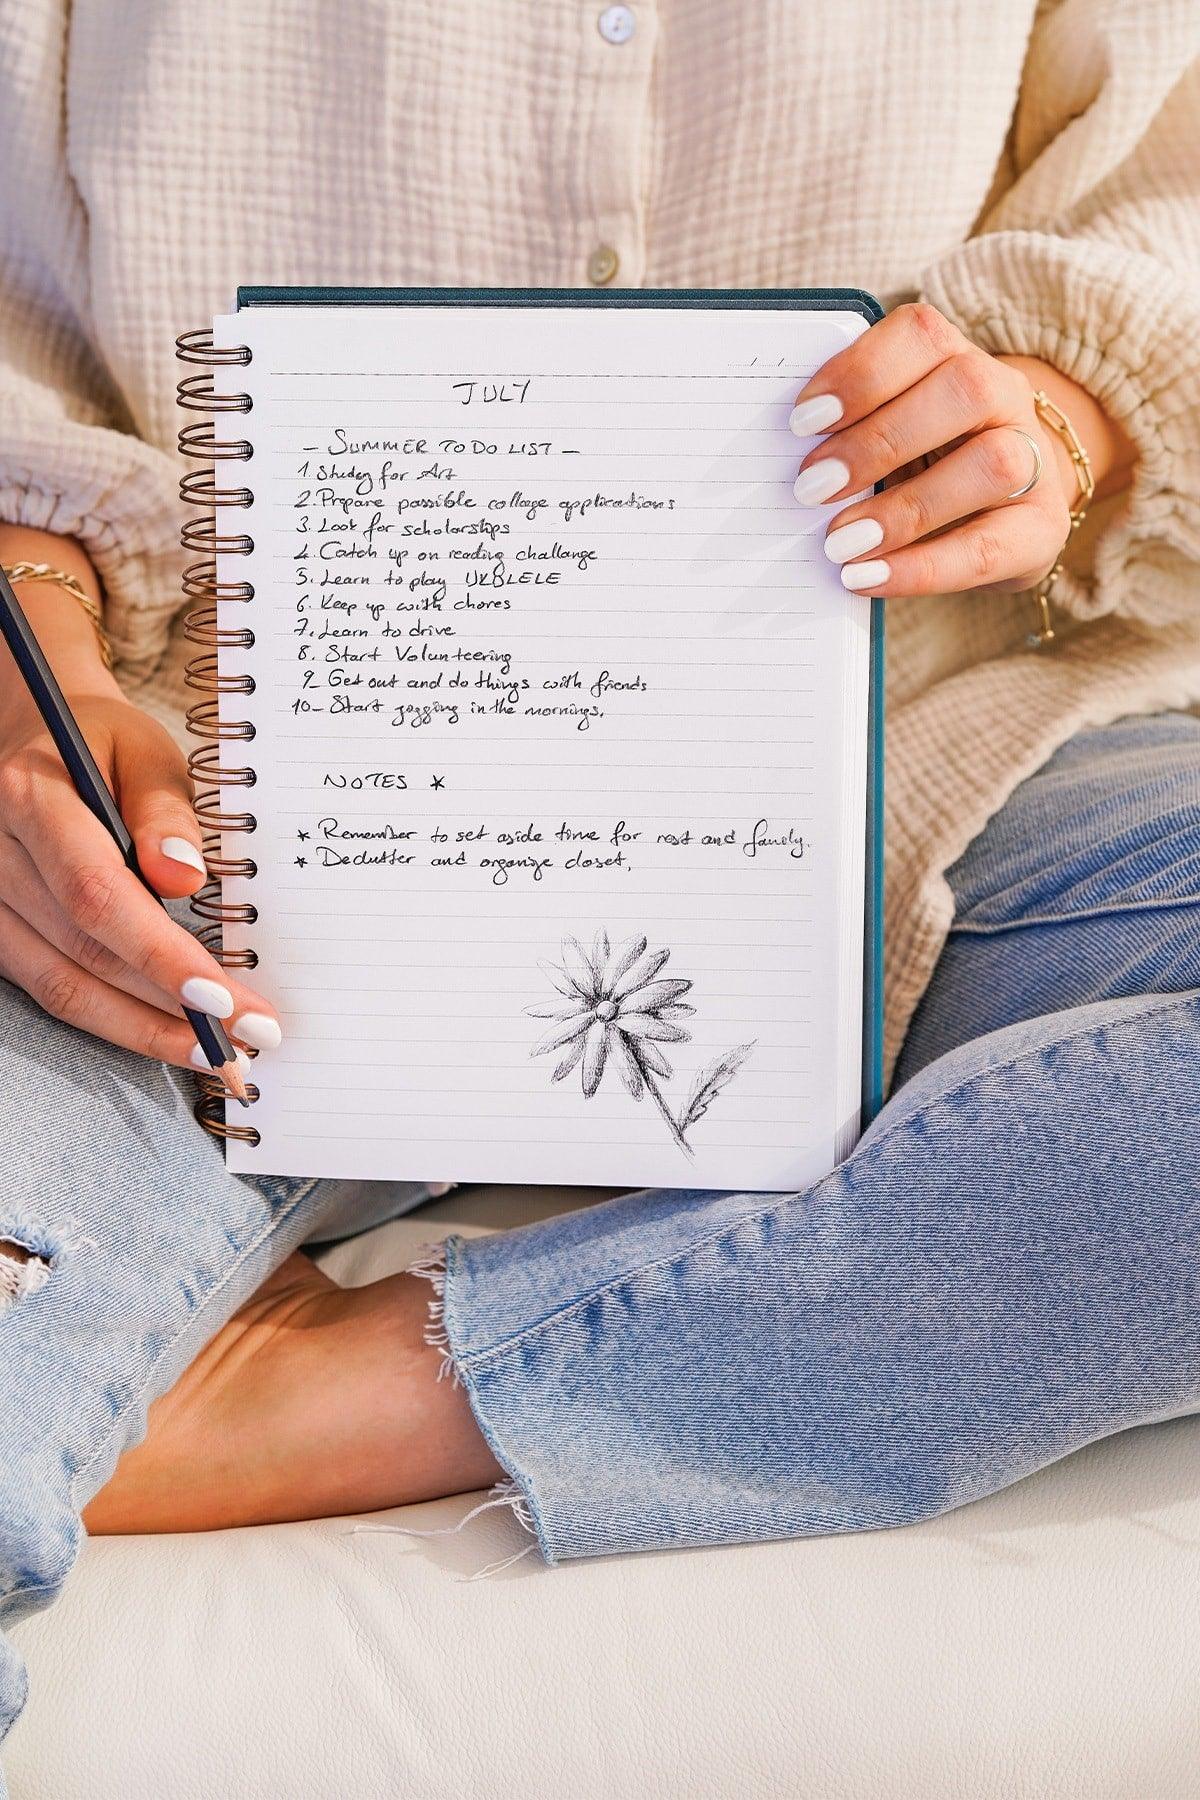 / /
JULY
- SUMMER TO DO LIST -
1. Study for Art
2. Prepare possible college applications
3. Look for scholarships
4. Catch up on reading challange
5. Learn to play UKULELE
6. Keep up with chores
7. Learn to drive
8. Start Volunteering
9_ Get out and do things with friends
10_ Start jogging in the mornings.
NOTES *
* Remember to set aside time for rest and family.
* Declutter and organize closet,